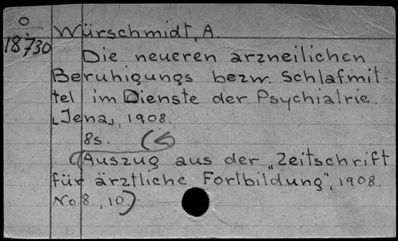 O
18730
Würschmidt, A.
Die neueren arzneilichen
Beruhigungs bezw. Schlafmit-
tel im Dienste der Psychiatrie.
[Jena], 1908.
8s.
(Auszug aus der „Zeitschrift
für ärztliche Fortbildung", 1908.
No 8, 10)